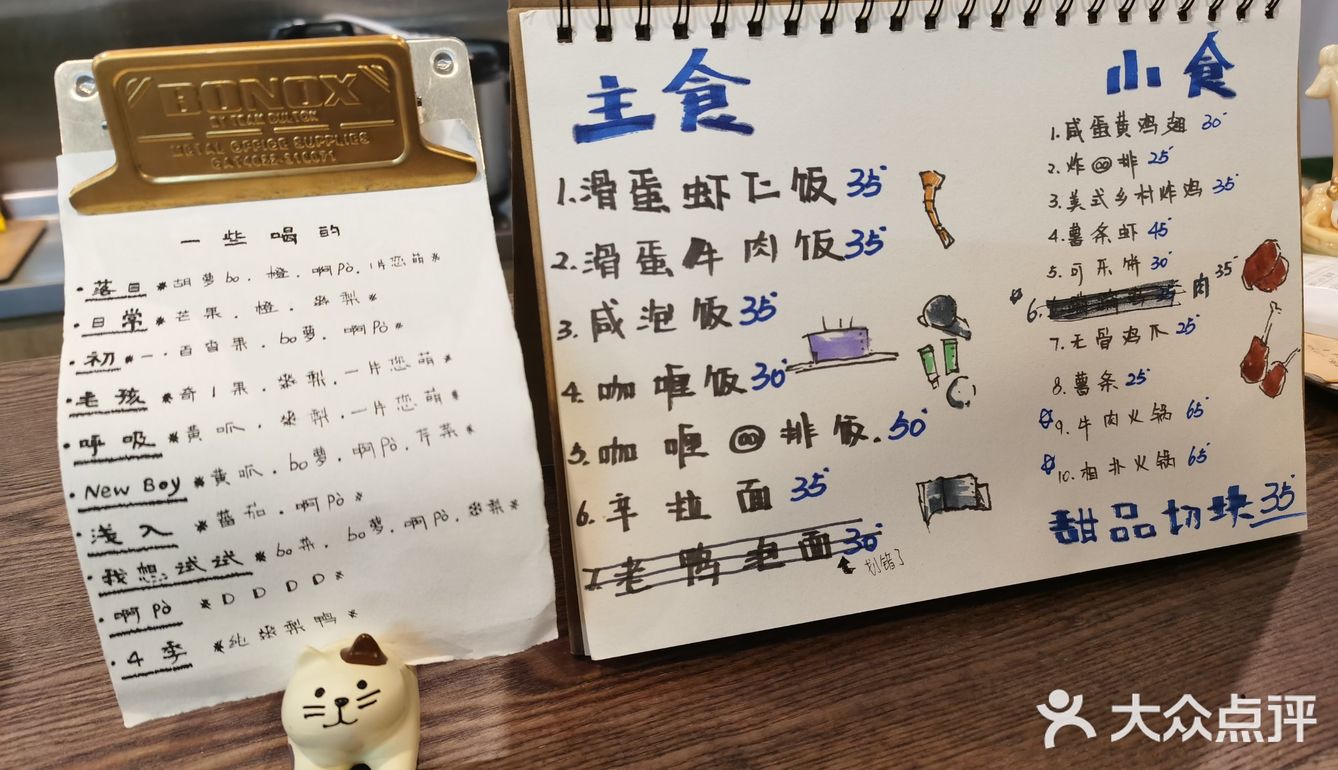 BONOX
BY TEAM DULTON
METAL OFFICE SUPPLIES
一些喝的
·落日 *胡萝bo.橙.啊pò.1片恋萌*
·日常 *芒果.橙.粢梨*
·初 *一.百香果.bo萝.啊pò*
·毛孩 *奇1果.粢梨.一片恋萌*
·呼吸 *黄呱.粢梨.一片恋萌*
·New Boy *黄呱.bo萝.啊pò.芹菜*
·浅入 *蕃茄.啊pò*
·我想试试 *bo菜.bo萝.啊pò.粢梨*
·啊pò *D D D D*
·4季 *纯粢梨鸭*
主食
1.滑蛋虾仁饭35
2.滑蛋牛肉饭35
3.咸泡饭35
4.咖喱饭30
5.咖喱排饭.50
6.辛拉面35
7.老鸭泡面30
划错了
小食
1.咸蛋黄鸡翅 30
2.炸排 25
3.美式乡村炸鸡 35
4.薯条虾 45
5.可乐饼 30
6. 肉 35
7.无骨鸡爪 25
8.薯条 25
9.牛肉火锅 65
10.相扑火锅 65
甜品切块35
大众点评